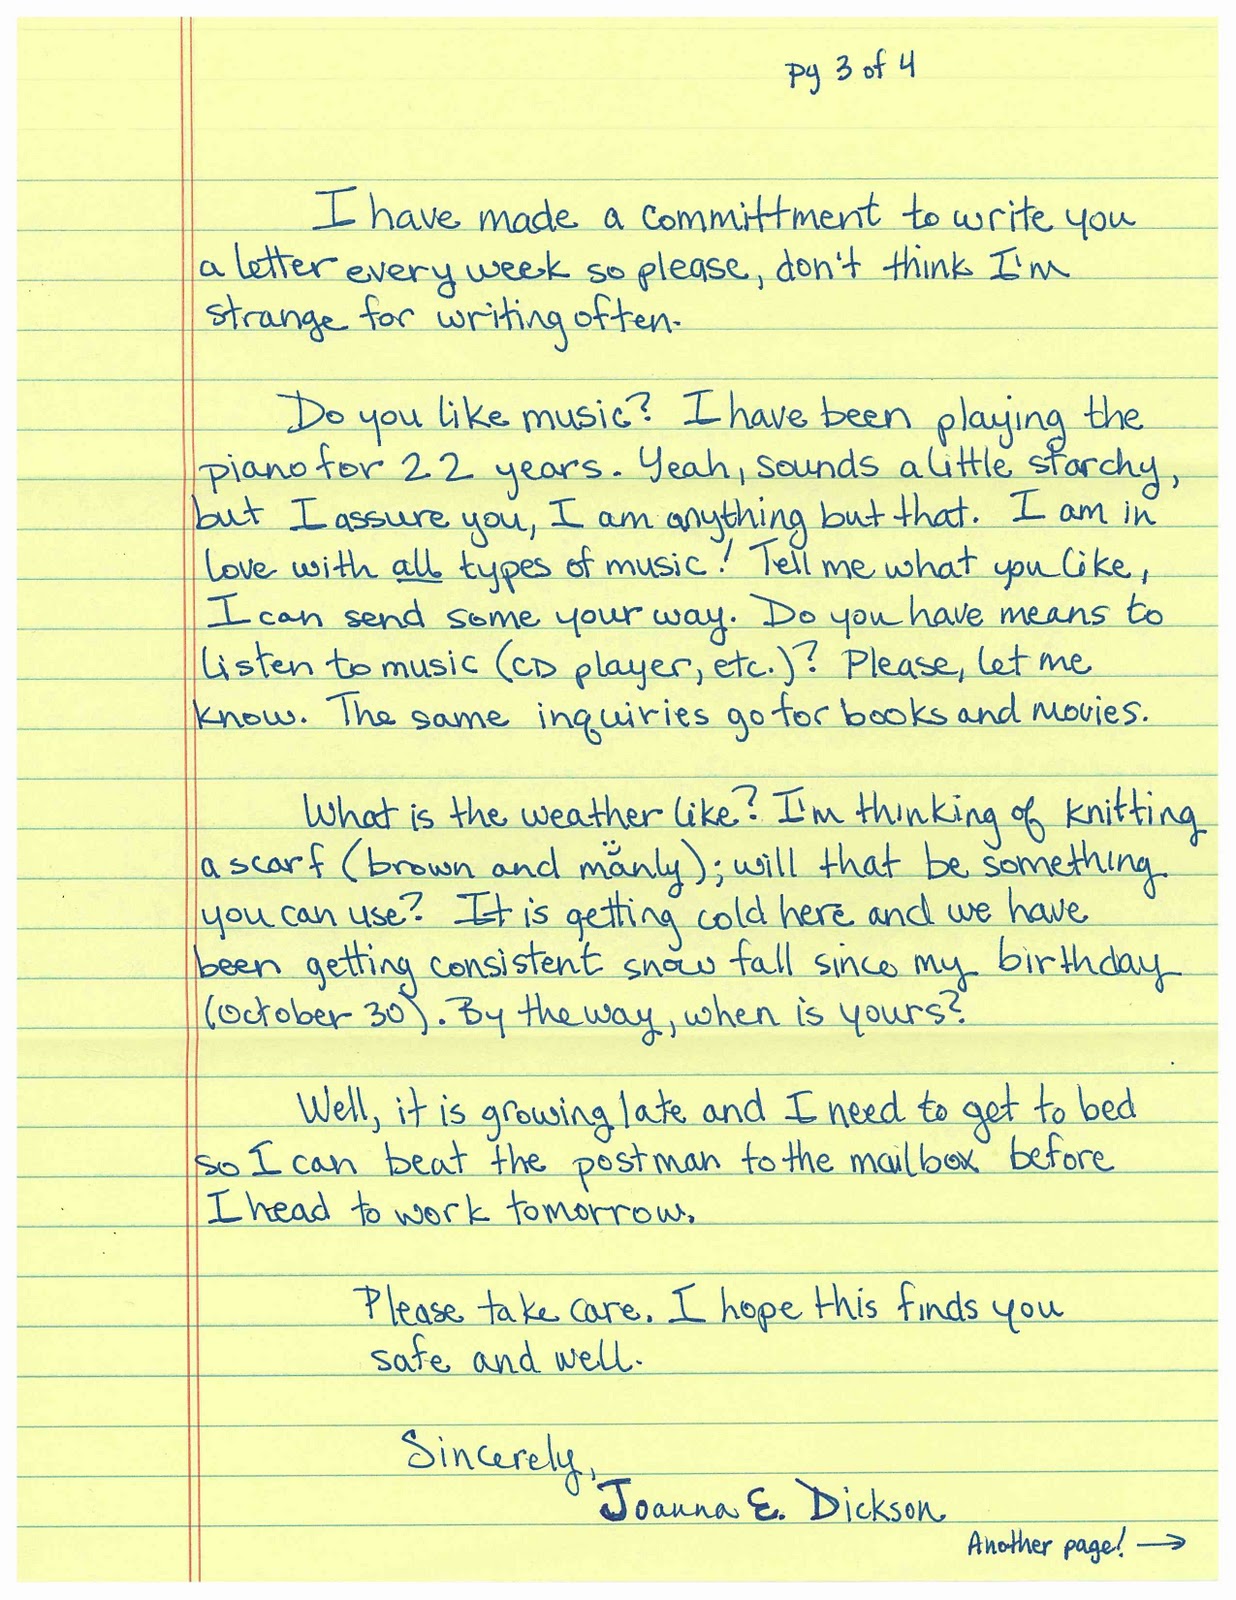 pg 3 of 4
I have made a committment to write you
a letter every week so please, don't think I'm
strange for writing often.
Do you like music? I have been playing the
piano for 22 years. Yeah, sounds a little starchy,
but I assure you, I am anything but that. I am in
love with all types of music! Tell me what you like,
I can send some your way. Do you have means to
listen to music (CD player, etc.)? Please, let me
know. The same inquiries go for books and movies.
What is the weather like? I'm thinking of knitting
a scarf (brown and manly); will that be something
you can use? It is getting cold here and we have
been getting consistent snow fall since my birthday
(October 30). By the way, when is yours?
Well, it is growing late and I need to get to bed
so I can beat the postman to the mailbox before
I head to work tomorrow.
Please take care. I hope this finds you
safe and well.
Sincerely,
Joanna E. Dickson
Another page! →